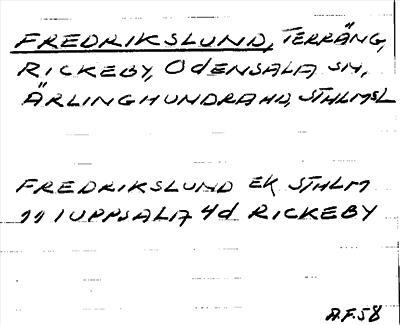 FREDRIKSLUND, TERRÄNG,
RICKEBY, ODENSALA SN,
ÄRLINGHUNDRA HD, STHLMSL
FREDRIKSLUND EK STHLM
111 UPPSALA 4d RICKEBY
A.F.58